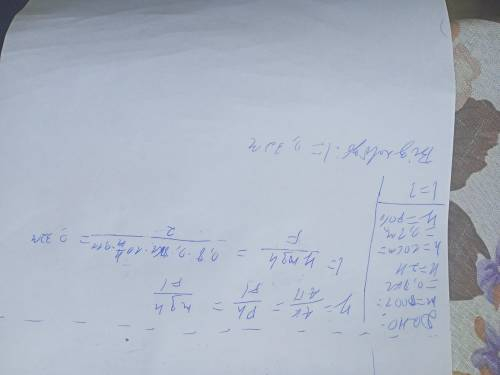 Дано:
m=400г=
=0,4кг
F=2Н
h=20см=
=0,2м
η=80%
l=?
η = Aк/Aп = Ph/Fl = mgh/Fl
l = ηmgh/F = 0,8·0,4кг·10 Н/кг·0,2м/2 = 0,32м
Відповідь: l=0,32м